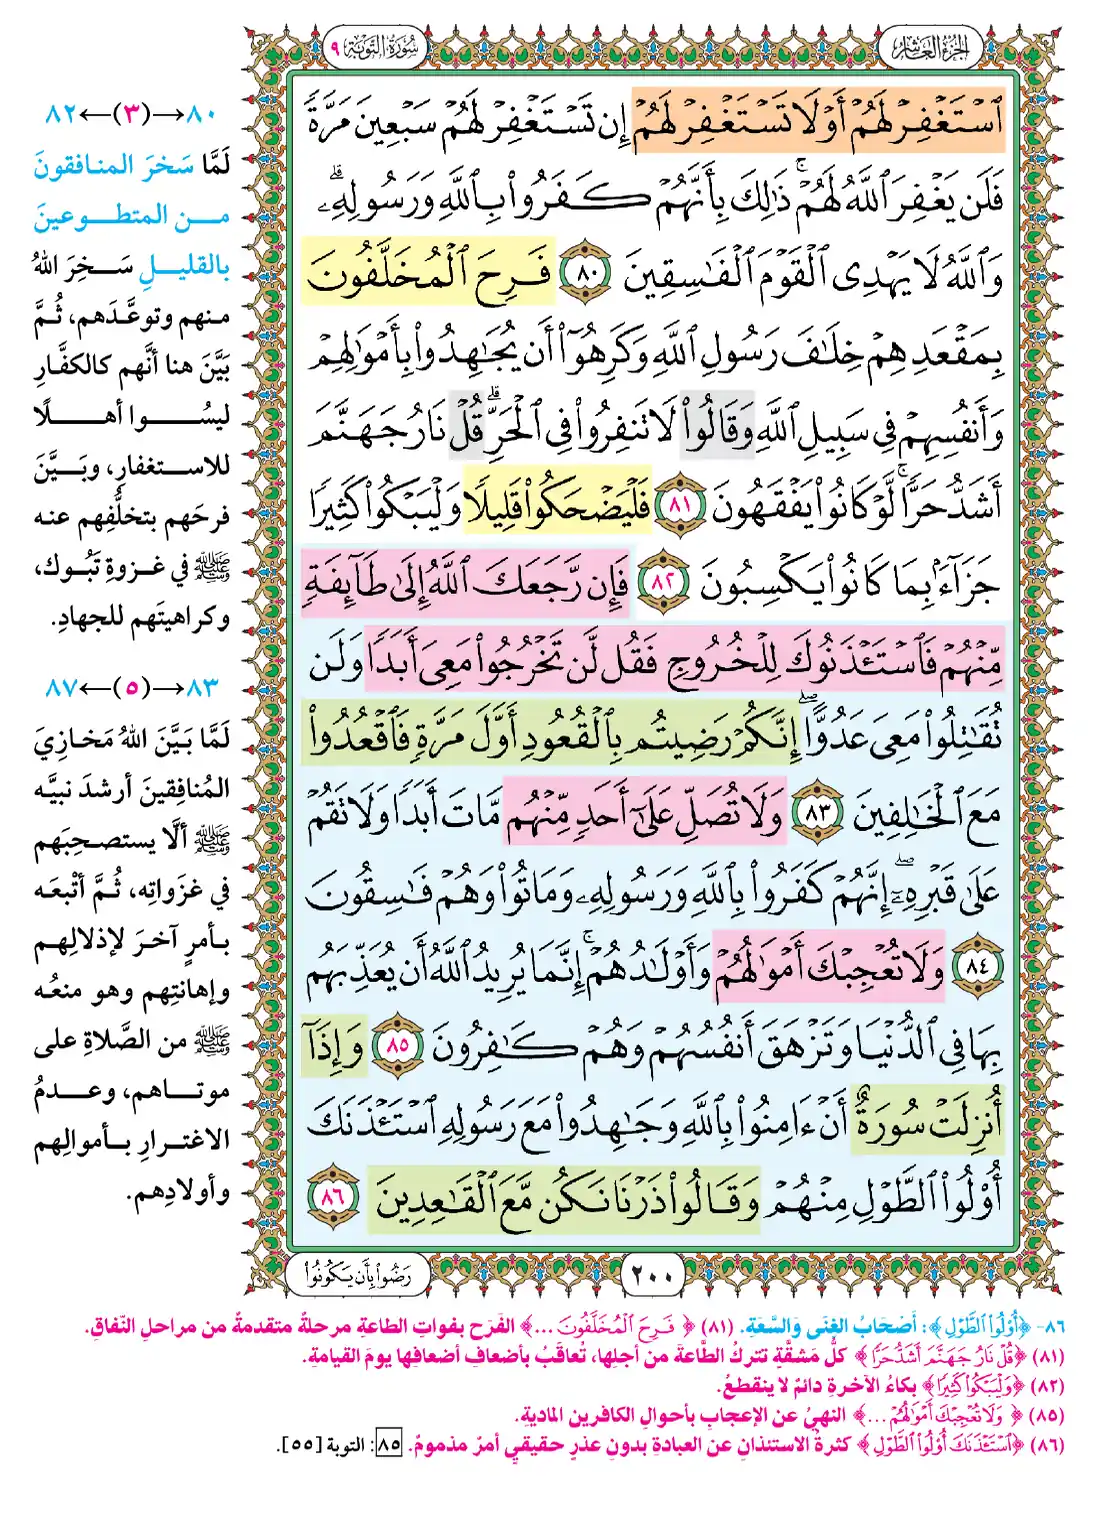 الجزء العاشر
سورة التوبة ٩
ٱسْتَغْفِرْ لَهُمْ أَوْ لَا تَسْتَغْفِرْ لَهُمْ إِن تَسْتَغْفِرْ لَهُمْ سَبْعِينَ مَرَّةً
فَلَن يَغْفِرَ ٱللَّهُ لَهُمْ ۚ ذَٰلِكَ بِأَنَّهُمْ كَفَرُوا۟ بِٱللَّهِ وَرَسُولِهِۦ ۗ
وَٱللَّهُ لَا يَهْدِى ٱلْقَوْمَ ٱلْفَٰسِقِينَ ٨٠ فَرِحَ ٱلْمُخَلَّفُونَ
بِمَقْعَدِهِمْ خِلَٰفَ رَسُولِ ٱللَّهِ وَكَرِهُوٓا۟ أَن يُجَٰهِدُوا۟ بِأَمْوَٰلِهِمْ
وَأَنفُسِهِمْ فِى سَبِيلِ ٱللَّهِ وَقَالُوا۟ لَا تَنفِرُوا۟ فِى ٱلْحَرِّ ۗ قُلْ نَارُ جَهَنَّمَ
أَشَدُّ حَرًّا ۚ لَّوْ كَانُوا۟ يَفْقَهُونَ ٨١ فَلْيَضْحَكُوا۟ قَلِيلًا وَلْيَبْكُوا۟ كَثِيرًا
جَزَآءًۢ بِمَا كَانُوا۟ يَكْسِبُونَ ٨٢ فَإِن رَّجَعَكَ ٱللَّهُ إِلَىٰ طَآئِفَةٍ
مِّنْهُمْ فَٱسْتَـْٔذَنُوكَ لِلْخُرُوجِ فَقُل لَّن تَخْرُجُوا۟ مَعِىَ أَبَدًا وَلَن
تُقَٰتِلُوا۟ مَعِىَ عَدُوًّا ۖ إِنَّكُمْ رَضِيتُم بِٱلْقُعُودِ أَوَّلَ مَرَّةٍ فَٱقْعُدُوا۟
مَعَ ٱلْخَٰلِفِينَ ٨٣ وَلَا تُصَلِّ عَلَىٰٓ أَحَدٍ مِّنْهُم مَّاتَ أَبَدًا وَلَا تَقُمْ
عَلَىٰ قَبْرِهِۦٓ ۖ إِنَّهُمْ كَفَرُوا۟ بِٱللَّهِ وَرَسُولِهِۦ وَمَاتُوا۟ وَهُمْ فَٰسِقُونَ
٨٤ وَلَا تُعْجِبْكَ أَمْوَٰلُهُمْ وَأَوْلَٰدُهُمْ ۚ إِنَّمَا يُرِيدُ ٱللَّهُ أَن يُعَذِّبَهُم
بِهَا فِى ٱلدُّنْيَا وَتَزْهَقَ أَنفُسُهُمْ وَهُمْ كَٰفِرُونَ ٨٥ وَإِذَآ
أُنزِلَتْ سُورَةٌ أَنْ ءَامِنُوا۟ بِٱللَّهِ وَجَٰهِدُوا۟ مَعَ رَسُولِهِ ٱسْتَـْٔذَنَكَ
أُو۟لُوا۟ ٱلطَّوْلِ مِنْهُمْ وَقَالُوا۟ ذَرْنَا نَكُن مَّعَ ٱلْقَٰعِدِينَ ٨٦
٢٠٠
رَضُوا۟ بِأَن يَكُونُوا۟
٨٠→(٣)←٨٢
لَمَّا سَخرَ المنافقونَ
من المتطوعينَ
بالقليلِ سَخِرَ اللهُ
منهم وتوعَّدَهم، ثُمَّ
بَيَّنَ هنا أنَّهم كالكفَّارِ
ليسُوا أهلًا
للاستغفارِ، وبَيَّنَ
فرحَهم بتخلُّفِهم عنه
ﷺ في غزوةِ تَبُوك،
وكراهيتَهم للجهادِ.
٨٣→(٥)←٨٧
لَمَّا بَيَّنَ اللهُ مَخازِيَ
المُنافِقينَ أرشدَ نبيَّه
ﷺ ألَّا يستصحِبَهم
في غزَواتِه، ثُمَّ أتْبعَه
بأمرٍ آخرَ لإذلالِهم
وإهانتِهم وهو منعُه
ﷺ من الصَّلاةِ على
موتاهم، وعدمُ
الاغترارِ بأموالِهم
وأولادِهم.
٨٦- ﴿أُو۟لُوا۟ ٱلطَّوْلِ﴾: أَصْحَابُ الغِنَى وَالسَّعَةِ. (٨١) ﴿ فَرِحَ ٱلْمُخَلَّفُونَ ...﴾ الفَرَح بفواتِ الطاعةِ مرحلةٌ متقدمةٌ من مراحلِ النِّفاقِ.
(٨١) ﴿قُلْ نَارُ جَهَنَّمَ أَشَدُّ حَرًّا﴾ كلُّ مَشقَّةٍ تتركُ الطَّاعةَ من أجلِها، تُعاقَبُ بأضعافِ أضعافِها يومَ القيامةِ.
(٨٢) ﴿وَلْيَبْكُوا۟ كَثِيرًا﴾ بكاءُ الآخرةِ دائمٌ لا ينقطعُ.
(٨٥) ﴿ وَلَا تُعْجِبْكَ أَمْوَٰلُهُمْ ...﴾ النهيُ عن الإعجابِ بأحوالِ الكافرين الماديةِ.
(٨٦) ﴿ٱسْتَـْٔذَنَكَ أُو۟لُوا۟ ٱلطَّوْلِ﴾ كثرةُ الاستئذانِ عن العبادةِ بدونِ عذرٍ حقيقيٍ أمرٌ مذمومٌ. ٨٥: التوبة [٥٥].